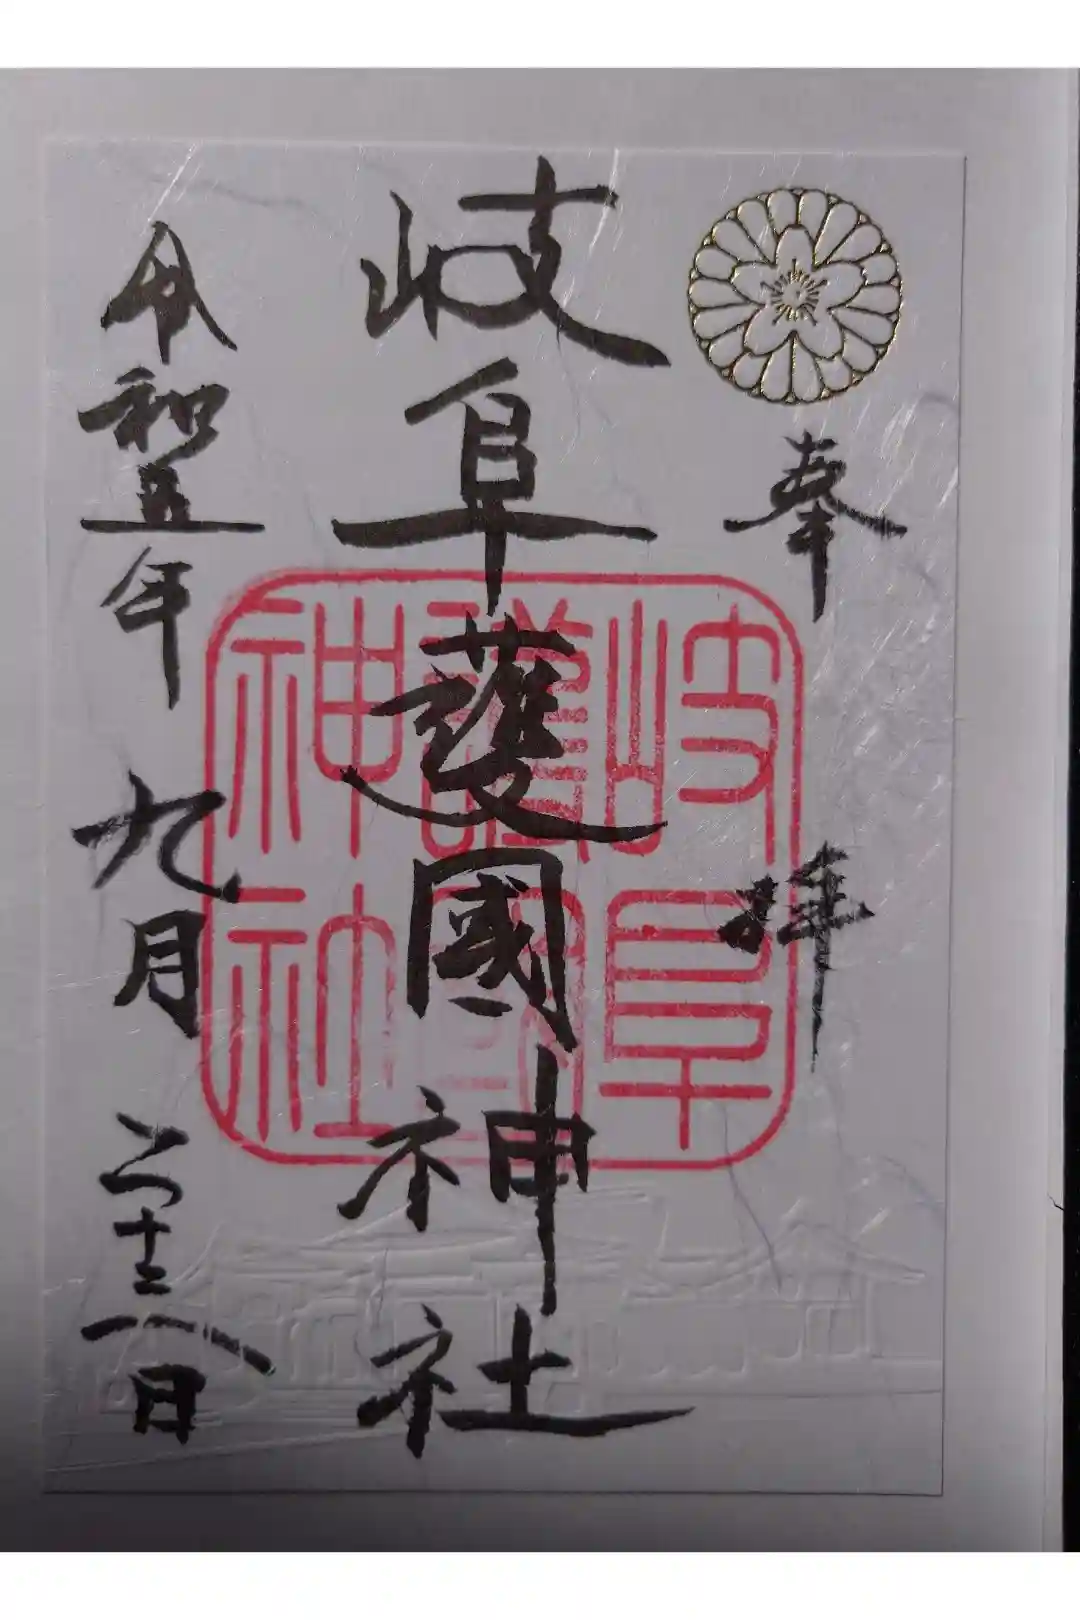 奉拝
岐阜護國神社
令和五年九月二十三日
岐阜
護國
神社